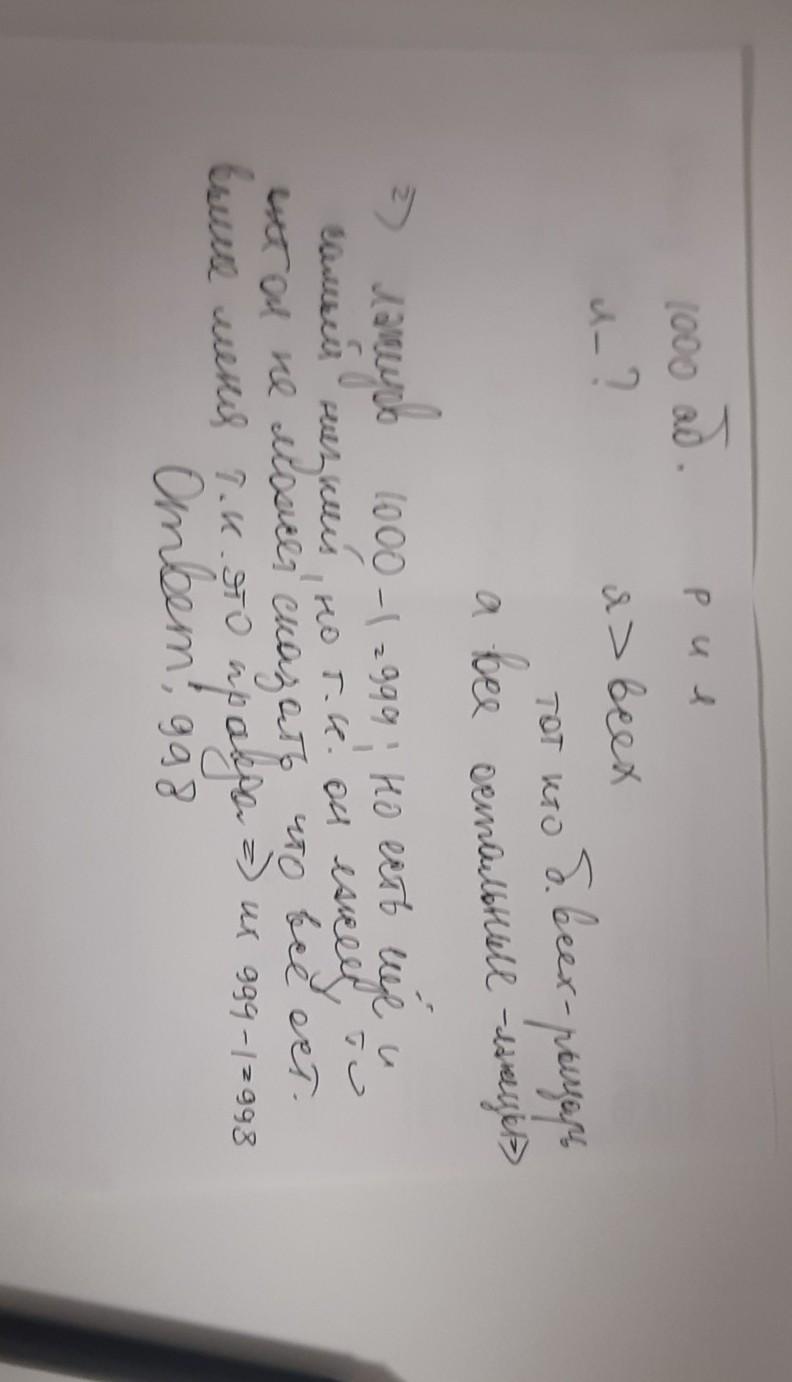 1000 аб. р и л
л - ? я > всех
тот кто б. всех - рыцарь
а все остальные - лжецы =>
=> лжецов 1000 - 1 = 999; но есть ещё и
самый низкий, но т.к. он лжец, то
он не может сказать что все ост.
выше меня т.к. это правда => их 999 - 1 = 998
Ответ: 998